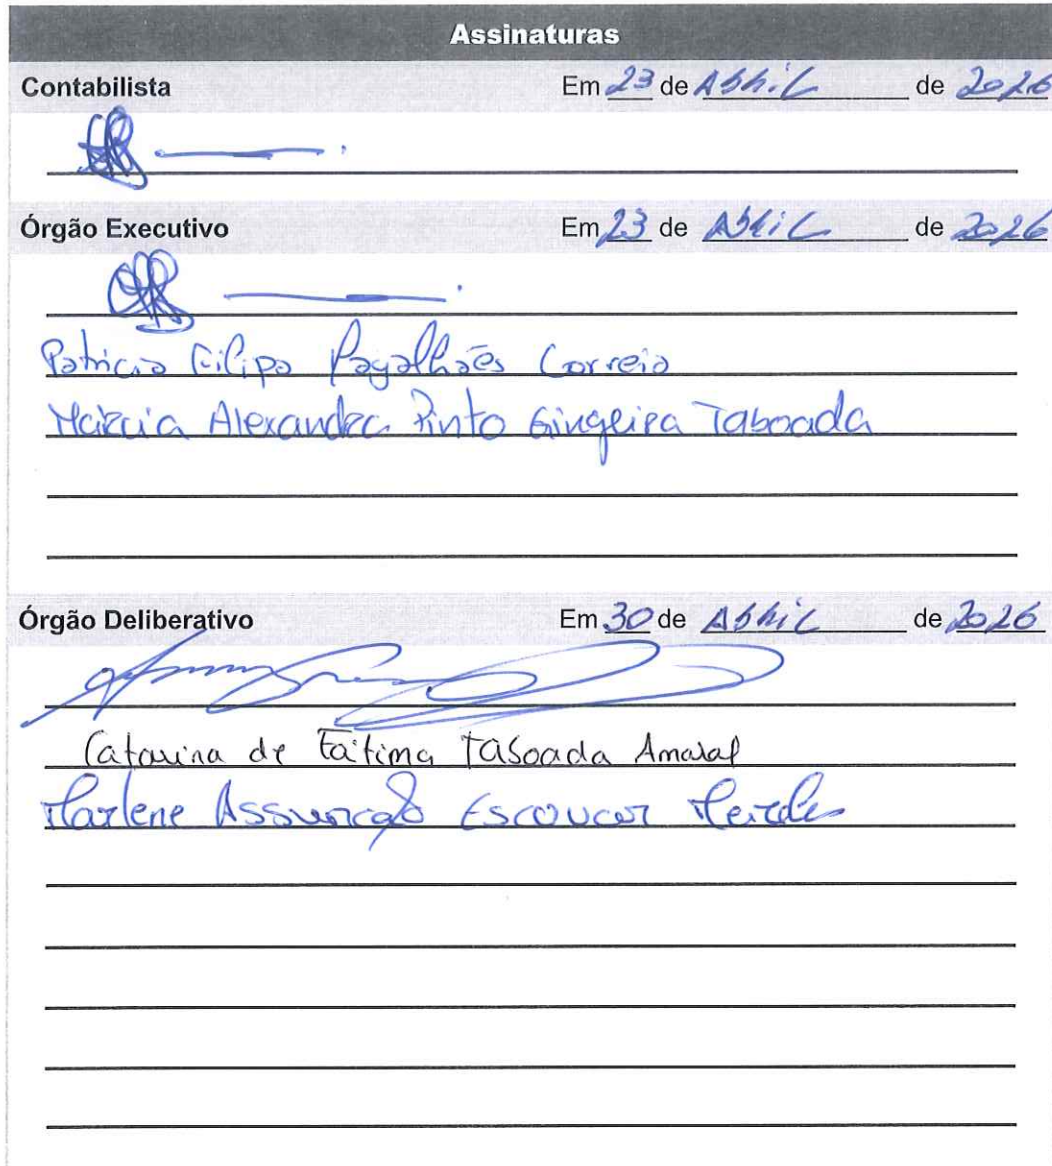 Assinaturas
Contabilista Em 23 de Abril de 2026
Órgão Executivo Em 23 de Abril de 2026
Patrícia Filipa Magalhães Correia
Márcia Alexandra Pinto Gingeira Taboada
Órgão Deliberativo Em 30 de Abril de 2026
Catarina de Fátima Taboada Amaral
Marlene Assunção Escoucar